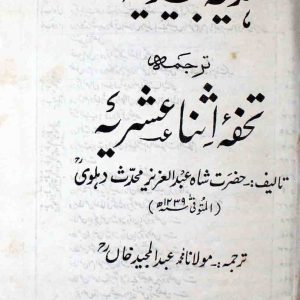 ہدیہ مجیدیہ
ترجمہ
تحفۂ اثنا عشریہ
تالیف:۔ حضرت شاہ عبدالعزیز محدث دہلوی ؒ
(المتوفیٰ سنہ ۱۲۳۹ھ)
ترجمہ:۔ مولانا محمد عبدالمجید خاں ؒ